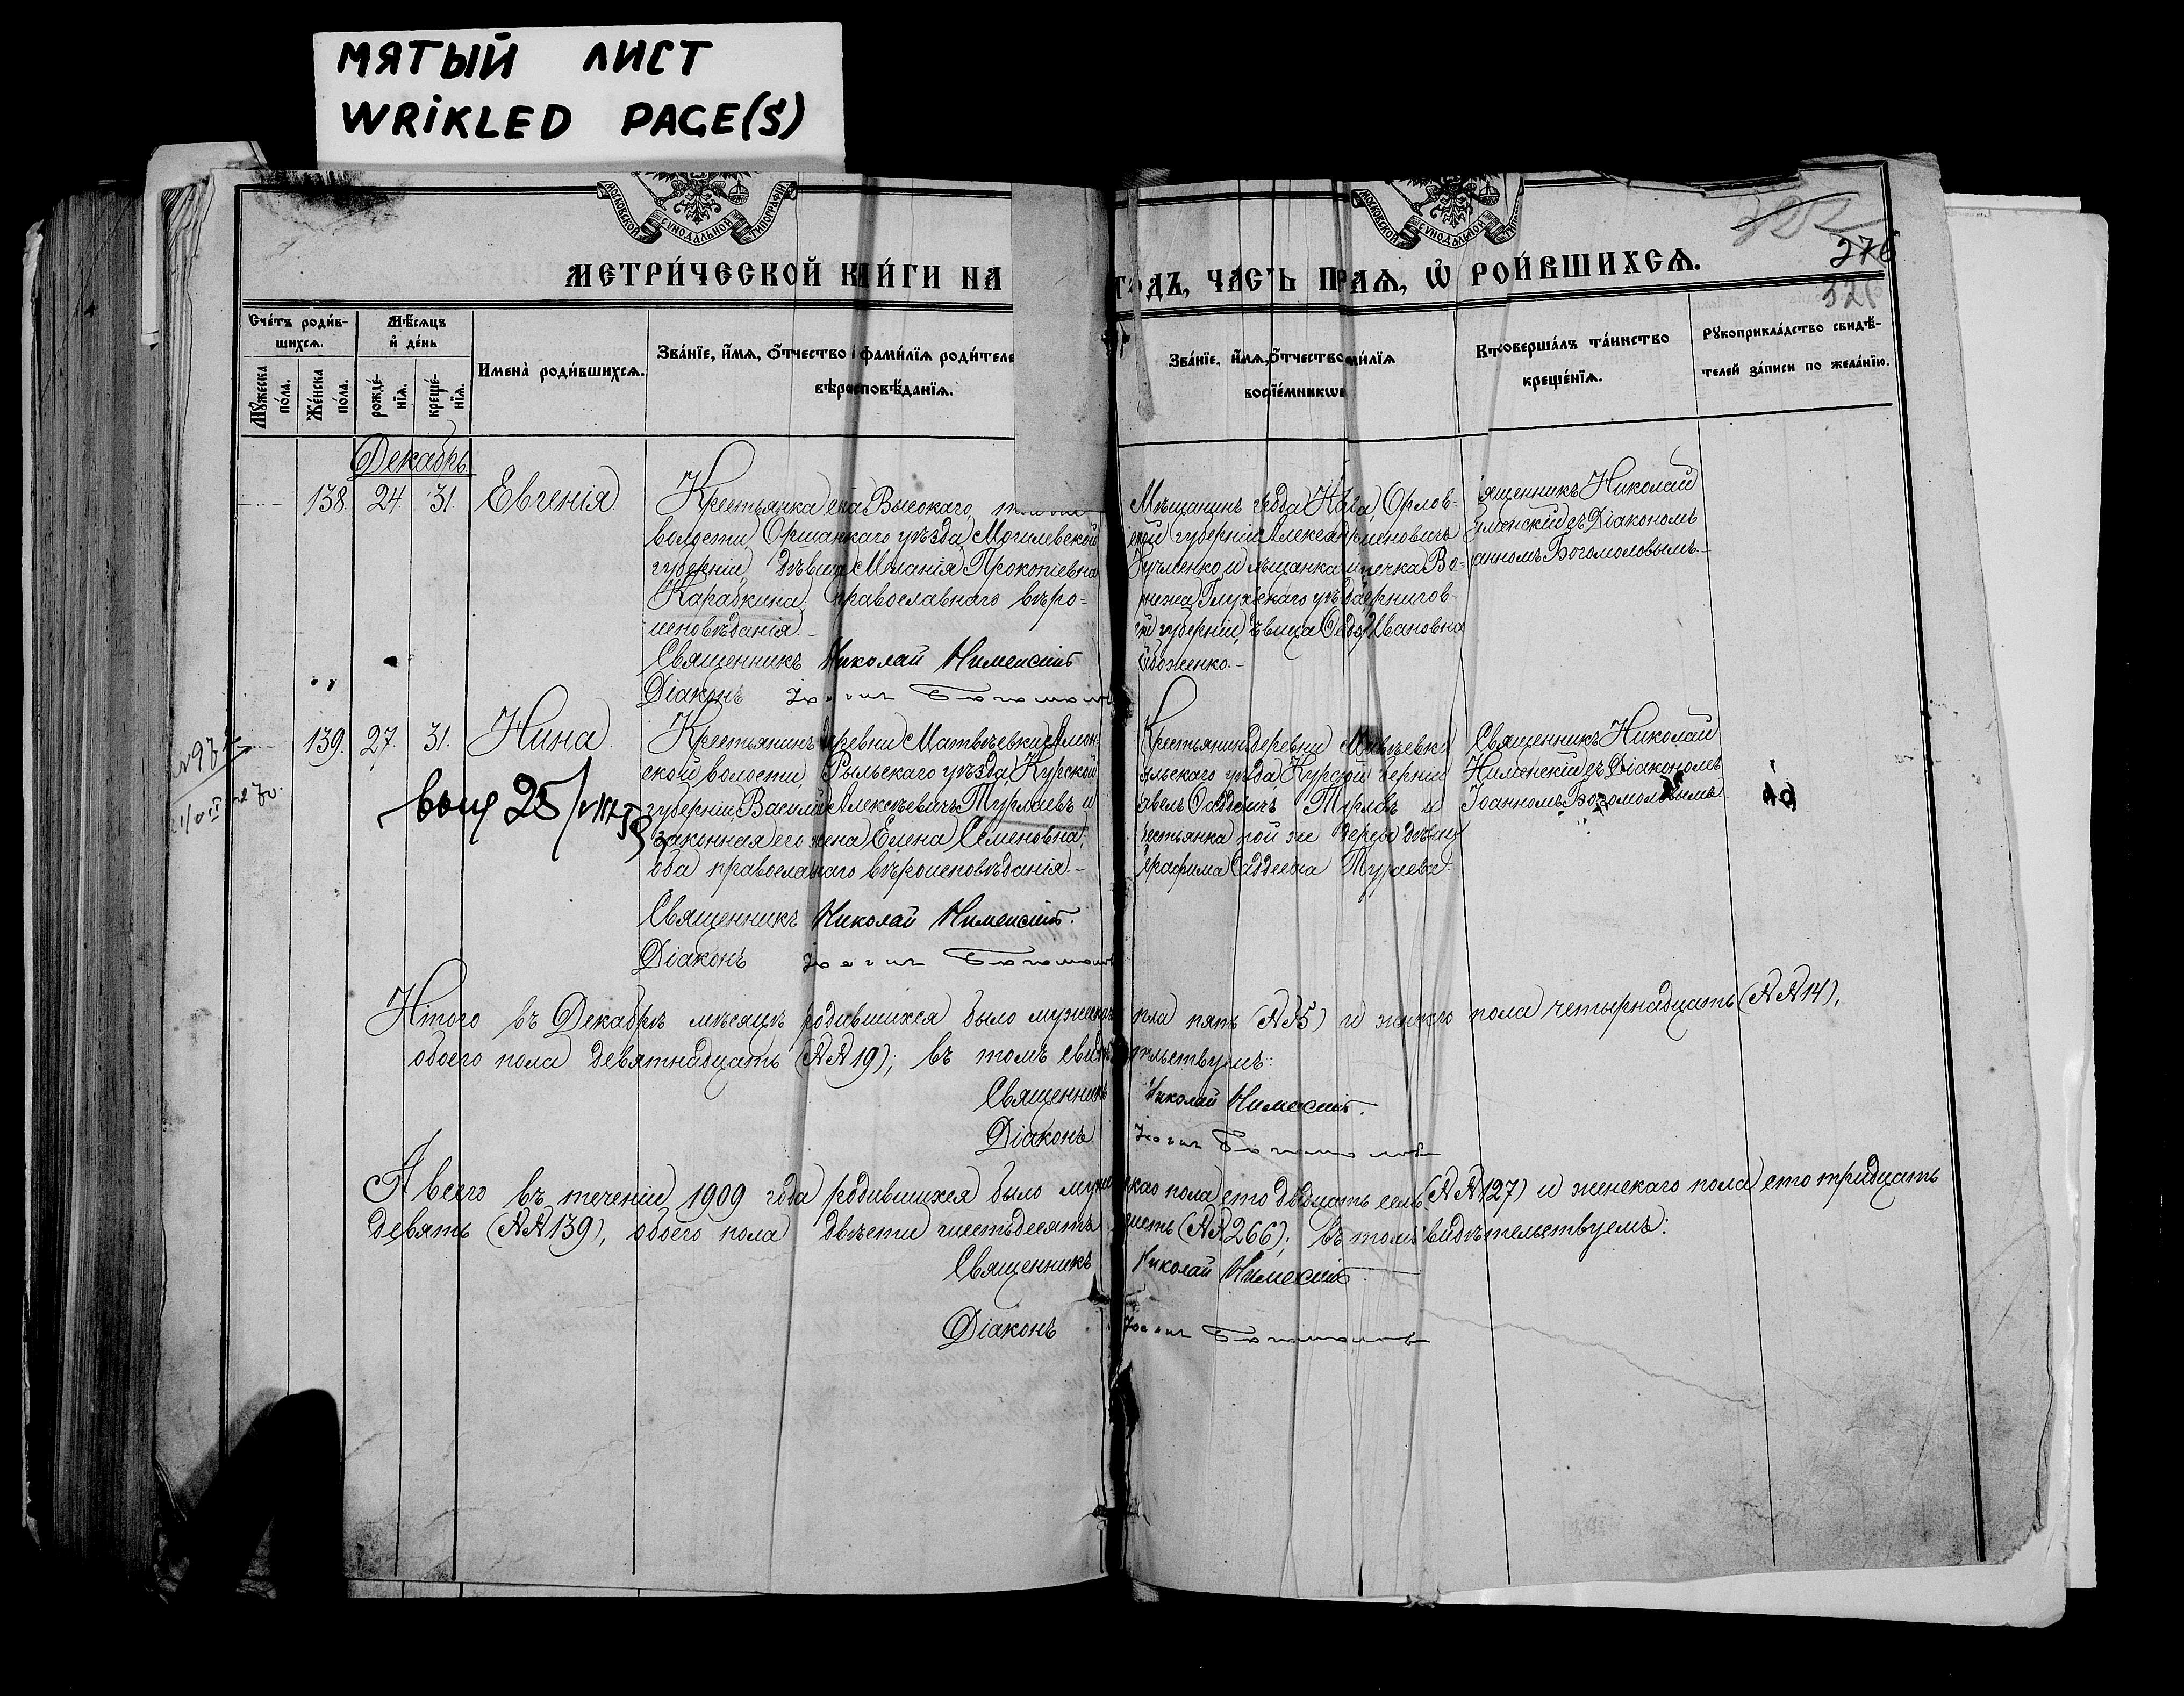 МЯТЫЙ ЛИСТ
WRIKLED PAGE(S)
МОСКОВСКОЙ СѴНОДАЛЬНОЙ ТИПОГРАФІИ
МОСКОВСКОЙ СѴНОДАЛЬНОЙ
276
МЕТРИ́ЧЕСКОЙ КНИ́ГИ НА
ГОДЪ, ЧАСТЬ П РАѦ, Ѡ РОИ́ВШИХСѦ.
Сче́тъ роди́в-
шихсѧ.
Мѹ́жеска по́ла.
Же́нска по́ла.
Мѣ́сѧцъ и҆ де́нь
рожде́-нїѧ.
креще́-нїѧ.
И҆мена̀ роди́вшихсѧ.
Зва́нїе, и҆́мѧ, ѻ҆́тчество и фами́лїѧ роди́теле
вѣроисповѣ́данїѧ.
Зва́нїе, и҆́мѧ, ѻ҆́тчество ми́лїѧ
воспрїе́мникѡвъ
Кто̀ соверша́лъ та́инство
креще́нїѧ.
Рѹкоприкла́дство свидѣ́-
телей за́писи по жела́нїю.
Декабрь
138. 24. 31. Евгенія
Крестьянка села Высокаго,
волости, Оршанскаго уѣзда, Могилевской
губерніи, дѣвица Меланія Прокопіевна
Карабкина, православнаго вѣро-
исповѣданія.
Священникъ Николай Нименскій
Діаконъ Іоаннъ Богомоловъ
Мѣщанинъ города Орлов-
ской губерніи Александръ Семеновичъ
Кучменко и мѣщанка мѣстечка Во-
нежа Глуховскаго уѣзда Чернигов-
ской губерніи, дѣвица Ивановна
ященникъ Николай
именскій съ Діакономъ
анномъ Богомоловымъ.
139. 27. 31. Нина.
Крестьянинъ деревни Матвѣевки, Амон-
ской волости, Рыльскаго уѣзда, Курской
губерніи, Василій Алексѣевичъ Тураевъ и
законная его жена Елена Семеновна,
оба православнаго вѣроисповѣданія.
Священникъ Николай Нименскій.
Діаконъ Іоаннъ Богомоловъ
Крестьянинъ деревни Матвѣевки
Рыльскаго уѣзда, Курской губерніи
Павелъ и
крестьянка той же деревни дѣвица
Серафима Тураева.
Священникъ Николай
Нименскій съ Діакономъ
Іоанномъ Богомоловымъ
Итого въ Декабрѣ мѣсяцѣ родившихся было мужскаго пола пять (№№5) и женскаго пола четырнадцать (№№14),
обоего пола девятнадцать (№№19); въ томъ свидѣтельствуемъ:
Священникъ Николай Нименскій.
Діаконъ Іоаннъ Богомоловъ
А всего въ теченіи 1909 года родившихся было мужескаго пола сто двадцать семь (№№127) и женскаго пола сто тридцать
девять (№№139), обоего пола двѣсти шестьдесятъ шесть (№№266); въ томъ свидѣтельствуемъ:
Священникъ Николай Нименскій
Діаконъ Іоаннъ Богомоловъ